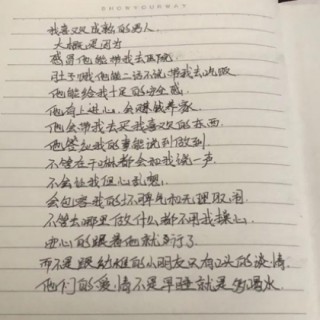 SHOWYOURWAY
我喜欢成熟的男人
大概是因为
感冒他能带我去医院
肚子饿他能二话不说带我去吃饭
他能给我十足的安全感
他有上进心，会赚钱养家
他会带我去买我喜欢的东西
他答应我的事能说到做到
不管在干嘛都会和我说一声
不会让我担心乱想
会包容我的坏脾气和无理取闹
不管去哪里做什么都不用我操心
安心的跟着他就行了
而不是跟幼稚的小朋友只有口头的谈情
他们的爱情不是早睡就是多喝水